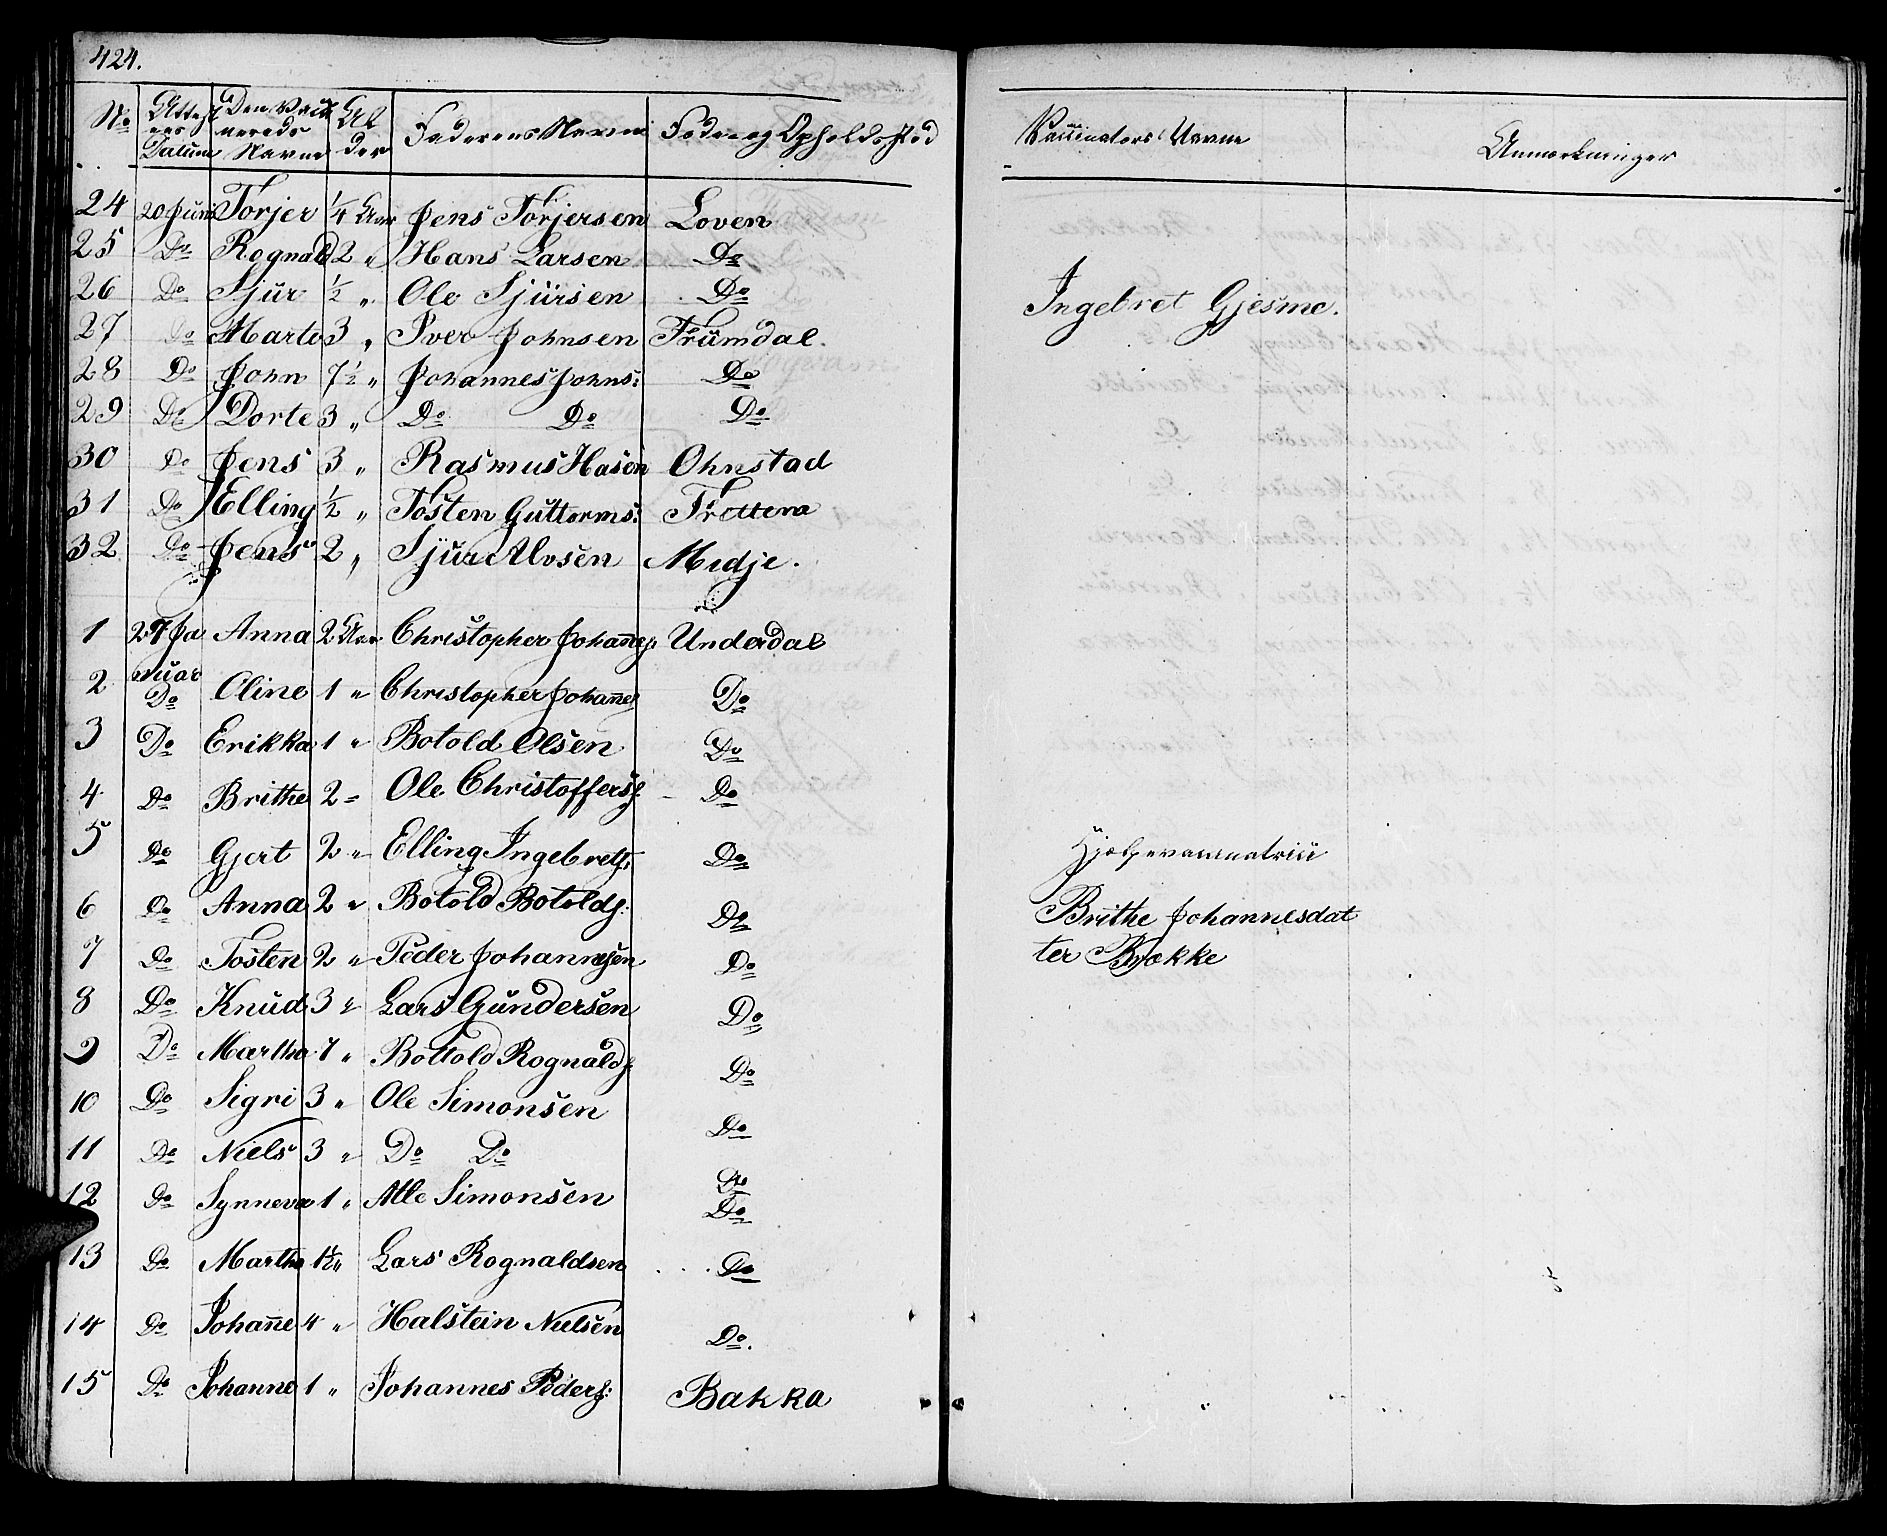 424.
No Attestes Datum Den Vaccinerede Navne Alder Faderens Navn Føde og Opholdssted Vaccinators Navne Anmærkninger
24 20 Juni Torjer 1/4 Aar Jens Torjersen Loven
25 Do Rognald 2 " Hans Larsen Do
26 Do Sjur 1/2 " Ole Sjursen Do
Ingebret Gjesme.
27 Do Marte 3 " Iver Johnsen Frumdal.
28 Do John 7 1/2 " Johannes Johns: Do
29 Do Dorte 3 " Do Do Do
30 Do Jens 3 " Rasmus Hasen Ohnstad
31 Do Elling 1/2 " Tosten Guttorms: Frettena
32 Do Jens 2 " Sjur Alvsen Midje.
1 27 Ja Anna 2 Aar Christopher Johannes: Underdal
nuar
2 Do Oline 1 " Christopher Johannes Do
3 Do Erikka 1 " Botold Olsen Do
4 Do Brithe 2 " Ole Christoffers: Do
5 Do Gjert 2 " Elling Ingebrets: Do
Hjælpevaccinatrice
6 Do Anna 2 " Botold Botolds: Do
Brithe Johannesdat
7 Do Tosten 2 " Peder Johannesen Do
ter Bække
8 Do Knud 3 " Lars Gundersen Do
9 Do Martha 1 " Bottold Rognalds: Do
10 Do Sigri 3 " Ole Simonsen Do
11 Do Niels 3 " Do Do Do
12 Do Synneva 1 " Atle Simonsen Do
13 Do Martha 1 1/2 " Lars Rognaldsen Do
14 Do Johanne 4 " Halstein Nielsen Do.
15 Do Johanne 1 " Johannes Peders: Bakka